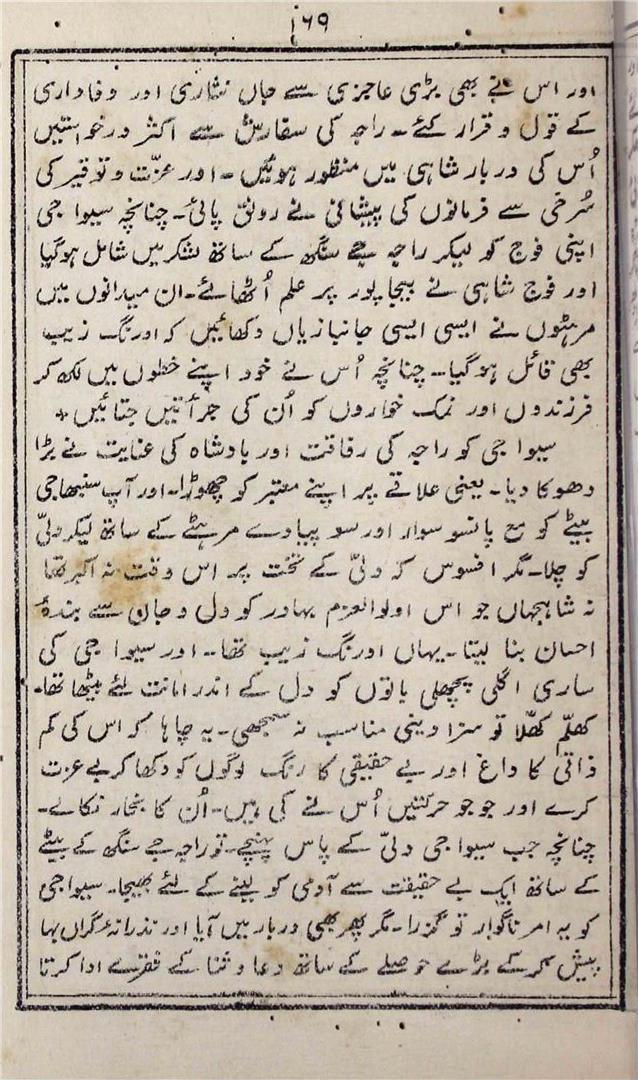 ۱۶۹
اور اس نے بھی بڑی عاجزی سے جاں نثاری اور وفاداری
کے قول و قرار کئے۔ راجہ کی سفارش سے اکثر درخواستیں
اُس کی دربار شاہی میں منظور ہوئیں۔ اور عزّت و توقیر کی
سُرخی سے فرمانوں کی پیشانی نے رونق پائی۔ چنانچہ سیوا جی
اپنی فوج کو لیکر راجہ جے سنگھ کے ساتھ لشکر میں شامل ہوگیا
اور فوج شاہی نے بیجاپور پر علم اُٹھائے۔ ان میدانوں میں
مرہٹوں نے ایسی ایسی جانبازیاں دکھائیں کہ اورنگ زیب
بھی قائل ہوگیا۔ چنانچہ اُس نے خود اپنے خطوں میں لکھ کر
فرزندوں اور نمک خواروں کو اُن کی جرأتیں جتائیں +
سیوا جی کو راجہ کی رفاقت اور بادشاہ کی عنایت نے بڑا
دھوکا دیا۔ یعنی علاقے پر اپنے معتبر کو چھوڑا۔ اور آپ سنبھاجی
بیٹے کو مع پانسو سوار اور سو پیادے مرہٹے کے ساتھ لیکر دلّی
کو چلا۔ مگر افسوس کہ دلّی کے تخت پر اس وقت نہ اکبر تھا
نہ شاہجہاں جو اس اولوالعزم بہادر کو دل و جان سے بندۂ
احسان بنا لیتا۔ یہاں اورنگ زیب تھا۔ اور سیوا جی کی
ساری اگلی پچھلی باتوں کو دل کے اندر امانت لئے بیٹھا تھا۔
کھلّم کھلّا تو سزا دینی مناسب نہ سمجھی۔ یہ چاہا کہ اس کی کم
ذاتی کا داغ اور بے حقیقی کا رنگ لوگوں کو دکھا کر بے عزت
کرے اور جو جو حرکتیں اُس نے کی ہیں۔ اُن کا بخار نکالے۔
چنانچہ جب سیوا جی دلّی کے پاس پہنچے۔ تو راجہ جے سنگھ کے بیٹے
کے ساتھ ایک بے حقیقت سے آدمی کو لینے کے لئے بھیجا۔ سیوا جی
کو یہ امر ناگوار تو گزرا۔ مگر پھر بھی دربار میں آیا اور نذرانۂ گراں بہا
پیش کرکے بڑے حوصلے کے ساتھ دعا و ثنا کے فقرے ادا کرتا